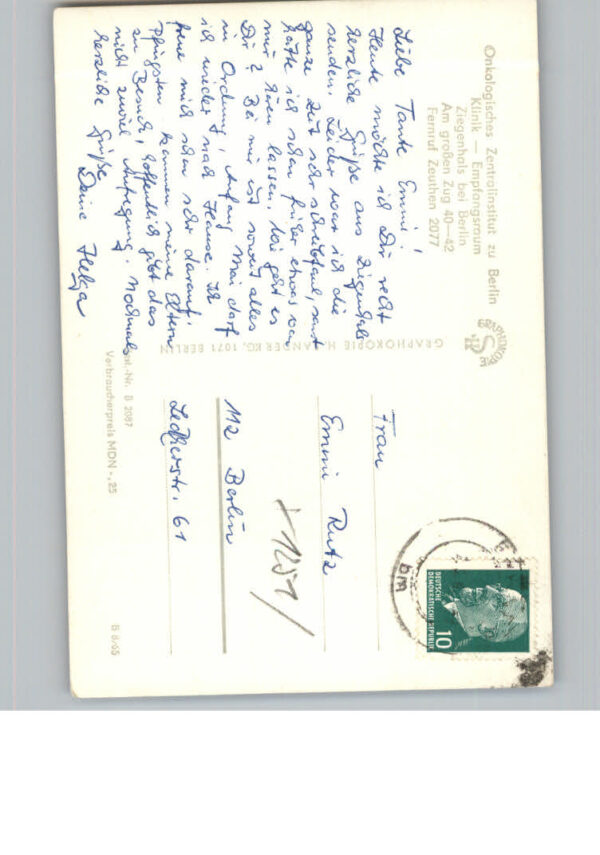 Onkologisches Zentralinstitut zu Berlin
Klinik — Empfangsraum
Ziegenhals bei Berlin
Am großen Zug 40—42
Fernruf Zeuthen 2077
Liebe Tante Emmi!
Heute möchte ich Dir recht
herzliche Grüße aus Ziegenhals
senden. Leider war ich die
ganze Zeit sehr schreibfaul, sonst
hätte ich schon früher etwas von
mir hören lassen. Wie geht es
Dir? Bei mir ist soweit alles
in Ordnung, Anfang Mai darf
ich wieder nach Hause. Ich
freue mich schon sehr darauf.
Pfingsten kommen meine Eltern
zu Besuch, hoffentlich gibt das
nicht zuviel Aufregung. Nochmals
herzliche Grüße
Deine Helga
GRAPHOKOPIE H. SANDER KG, 1071 BERLIN
GRAPHOKOPIE
Frau
Emmi Rutz
112 Berlin
1251
DEUTSCHE
DEMOKRATISCHE REPUBLIK
10
bm
Best.-Nr. B 2087
Verbraucherpreis MDN -,25
B 8/65